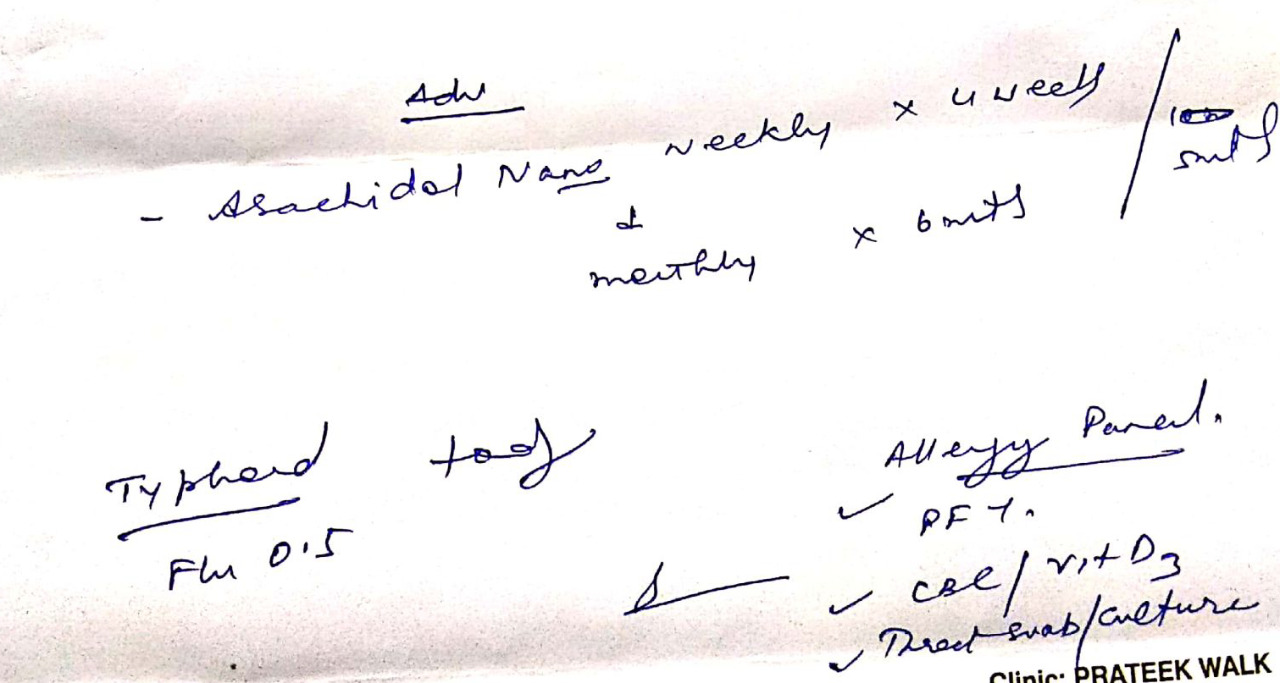 Adv
- Arachidol Nano weekly x 4 weeks / 5 mths
&
monthly x 6 mths
Typhoid today
Flu 0.5
Allergy Panel.
✓ PFT.
✓ CBC / vit D3
✓ Throat swab/culture
Clinic: PRATEEK WALK